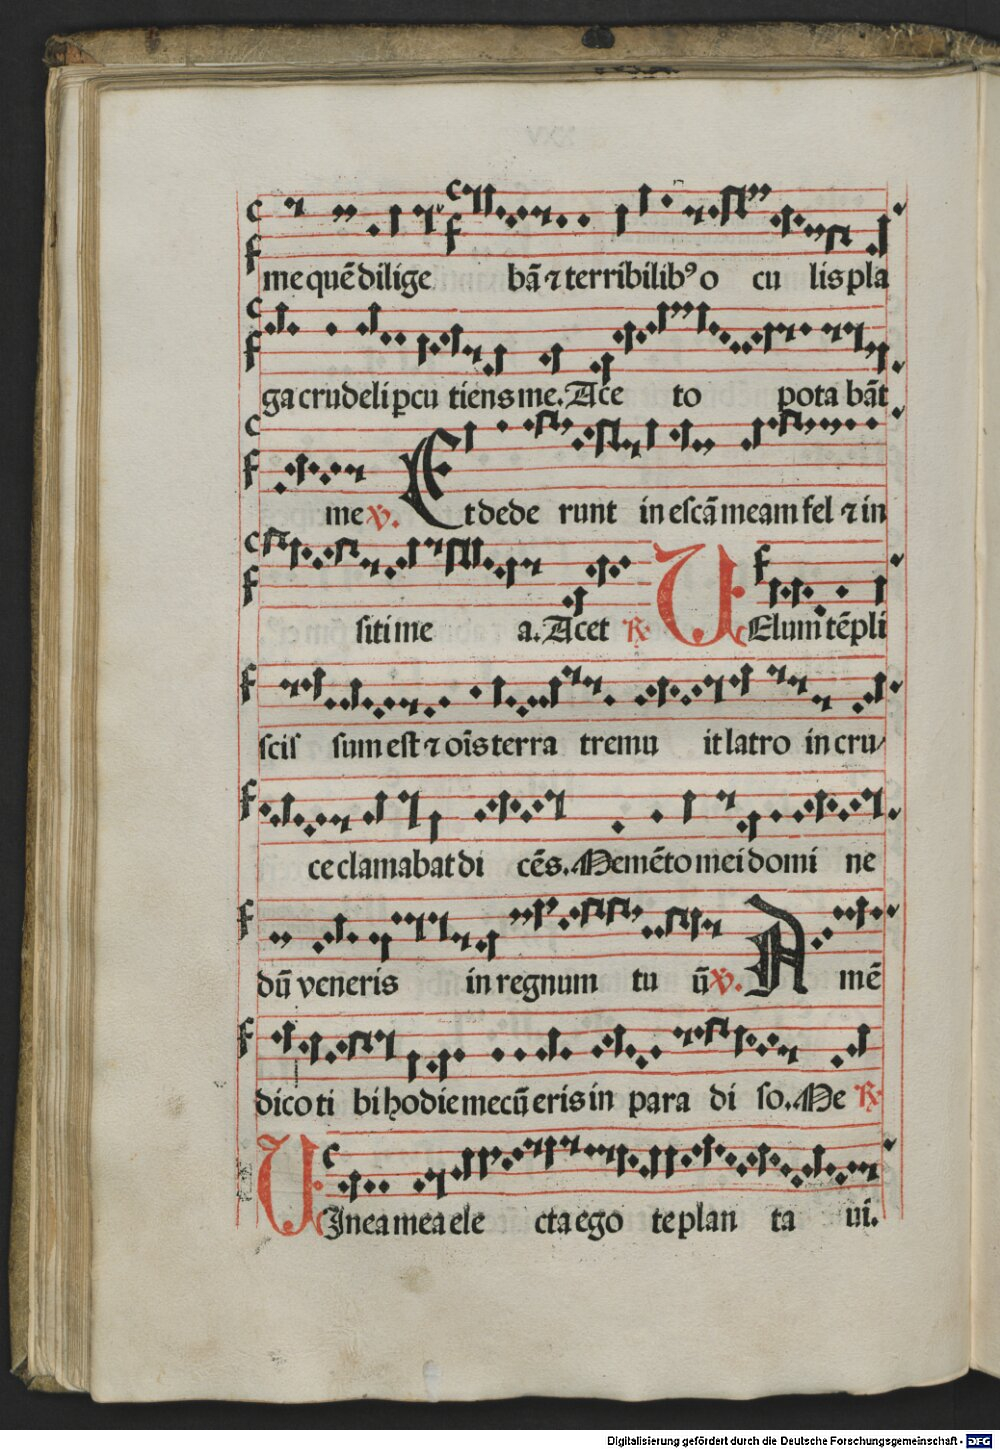 me quē dilige bā ⁊ terribilibꝰ o cu lis pla
ga crudeli ꝑcu tiens me. Ace to pota bāt
me v. Et dede runt in escā meam fel ⁊ in
siti me a. Acet R. UElum tēpli
scis sum est ⁊ oīs terra tremu it latro in cru/
ce clamabat di cēs. Memēto mei domi ne
dū veneris in regnum tu ū v. A mē
dico ti bi hodie mecū eris in para di so. Me R.
UInea mea ele cta ego te plan ta ui.
Digitalisierung gefördert durch die Deutsche Forschungsgemeinschaft - DFG